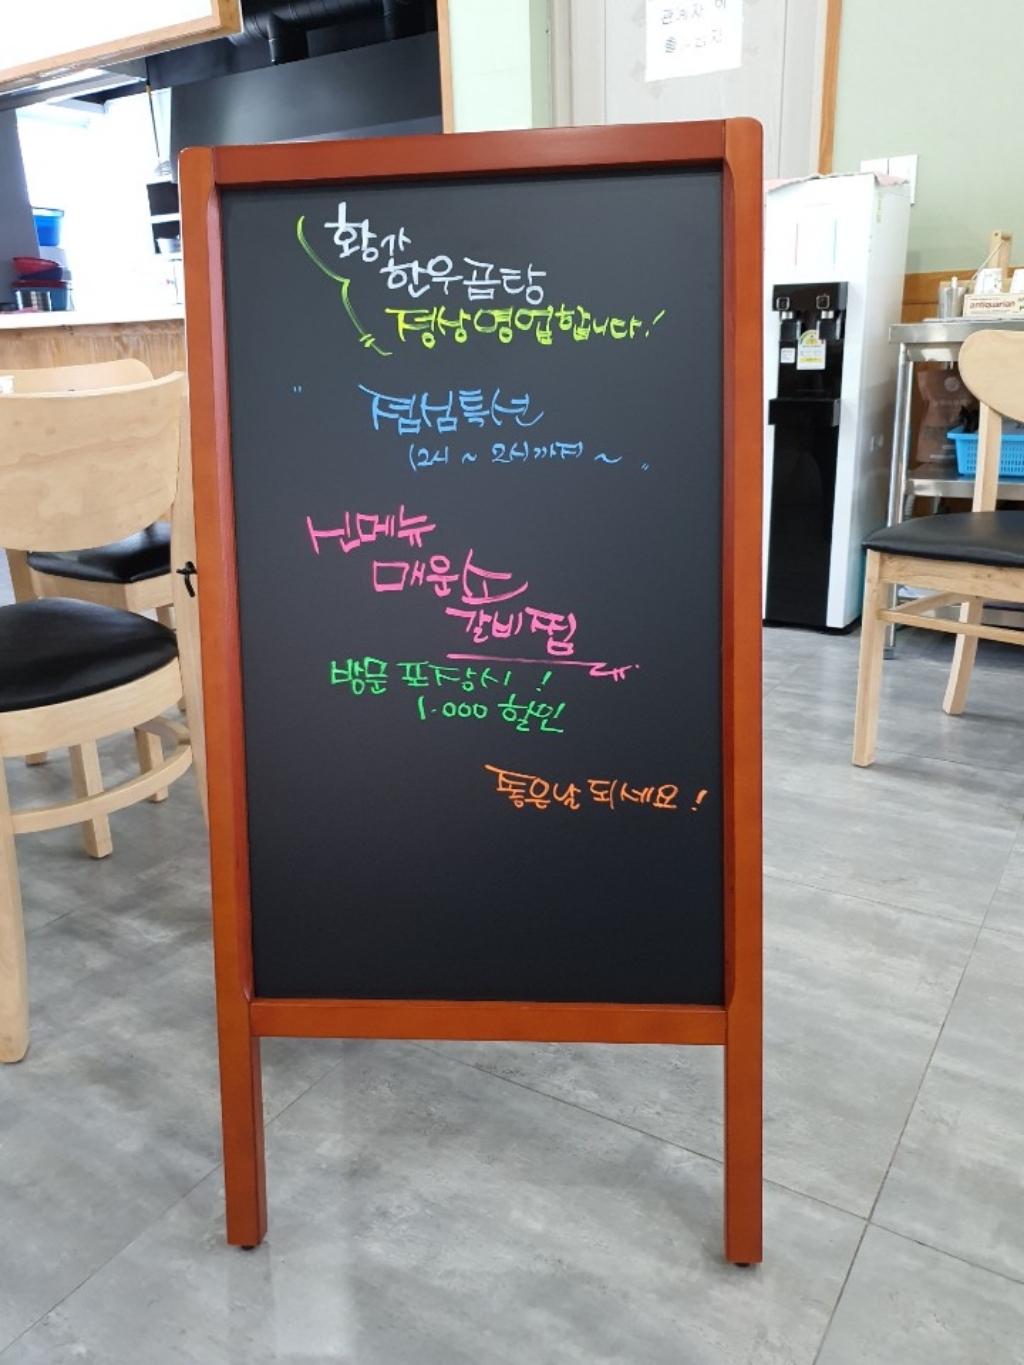 관계자 외
출입금지
황가
한우곰탕
정상영업합니다!
" 점심특선
(12시 ~ 2시까지 ~ "
신메뉴
매운소
갈비찜
방문 포장시 !
1.000 할인
좋은날 되세요 !
antiquarian